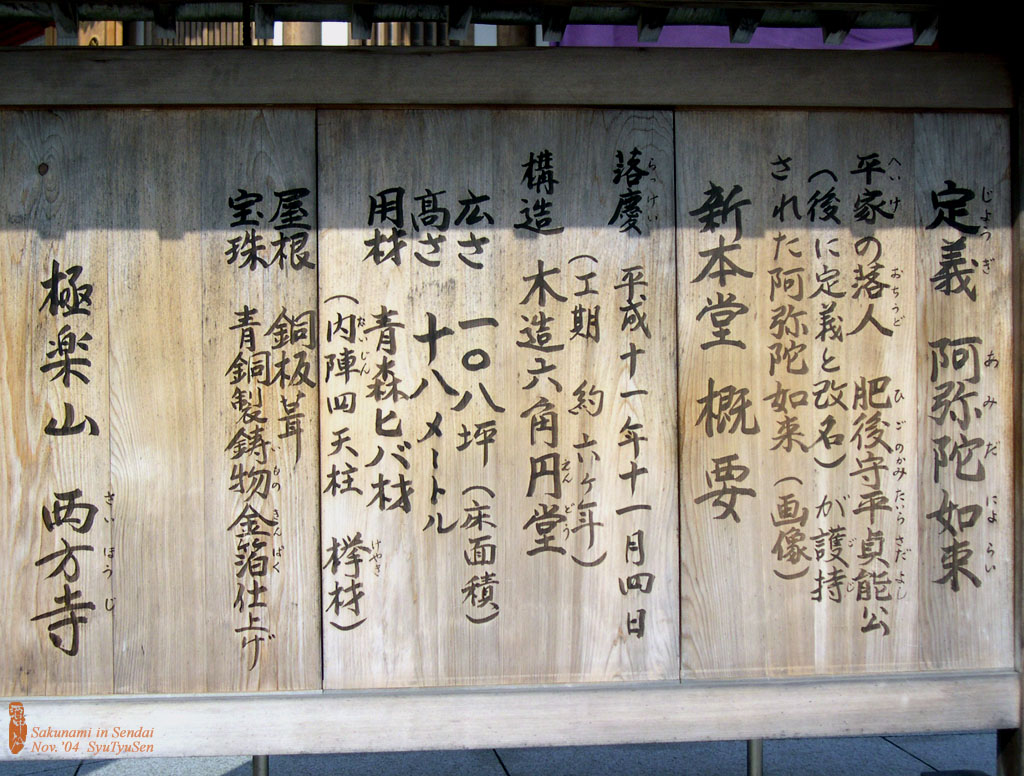 定義 阿弥陀如来
じょうぎ あみだにょらい
平家の落人 肥後守平貞能公
へいけ おちうど ひごのかみたいらさだよし
(後に定義と改名)が護持
ごじ
された阿弥陀如来(画像)
新本堂概要
落慶 平成十一年十一月四日
らっけい
(工期 約六ヶ年)
構造 木造六角円堂
えんどう
広さ 一〇八坪(床面積)
高さ 十八メートル
用材 青森ヒバ材
(内陣四天柱 欅材)
ないじん けやき
屋根 銅板葺
宝珠 青銅製鋳物金箔仕上げ
いもの きんぱく
極楽山 西方寺
さいほうじ
Sakunami in Sendai
Nov. '04 SyuTyuSen